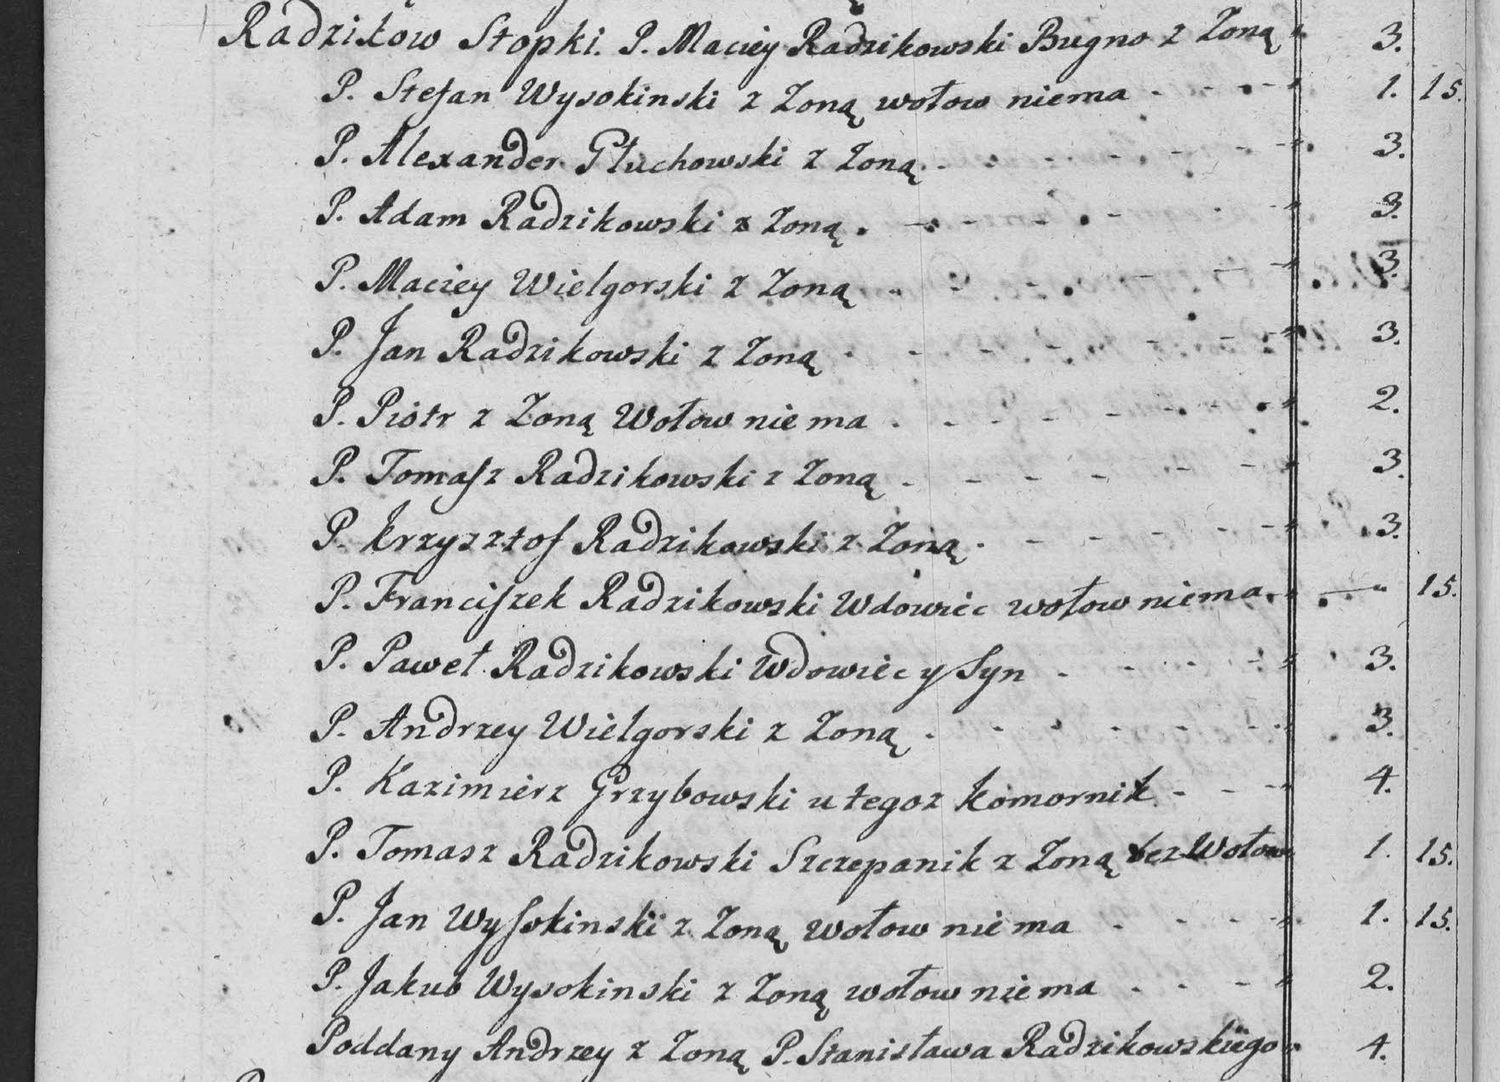 Radzikow Stopki. P. Maciey Radzikowski Bugno z Zoną 3.
P. Stefan Wysokinski z Zoną wołow niema 1. 15.
P. Alexander Głuchowski z Zoną 3.
P. Adam Radzikowski z Zoną 3.
P. Maciey Wielgorski z Zoną 3.
P. Jan Radzikowski z Zoną 3.
P. Piotr z Zoną Wołow niema 2.
P. Tomasz Radzikowski z Zoną 3.
P. Krzysztof Radzikowski z Zoną 3.
P. Franciszek Radzikowski Wdowiec wołow niema 15.
P. Paweł Radzikowski Wdowiec y Syn 3.
P. Andrzey Wielgorski z Zoną 3.
P. Kazimierz Grzybowski u tegoz Komornik 4.
P. Tomasz Radzikowski Szczepanik z Zoną bez Wołow 1. 15.
P. Jan Wysokinski z Zoną wołow niema 1. 15.
P. Jakub Wysokinski z Zoną wołow niema 2.
Poddany Andrzey z Zoną P. Stanisława Radzikowskiego 4.